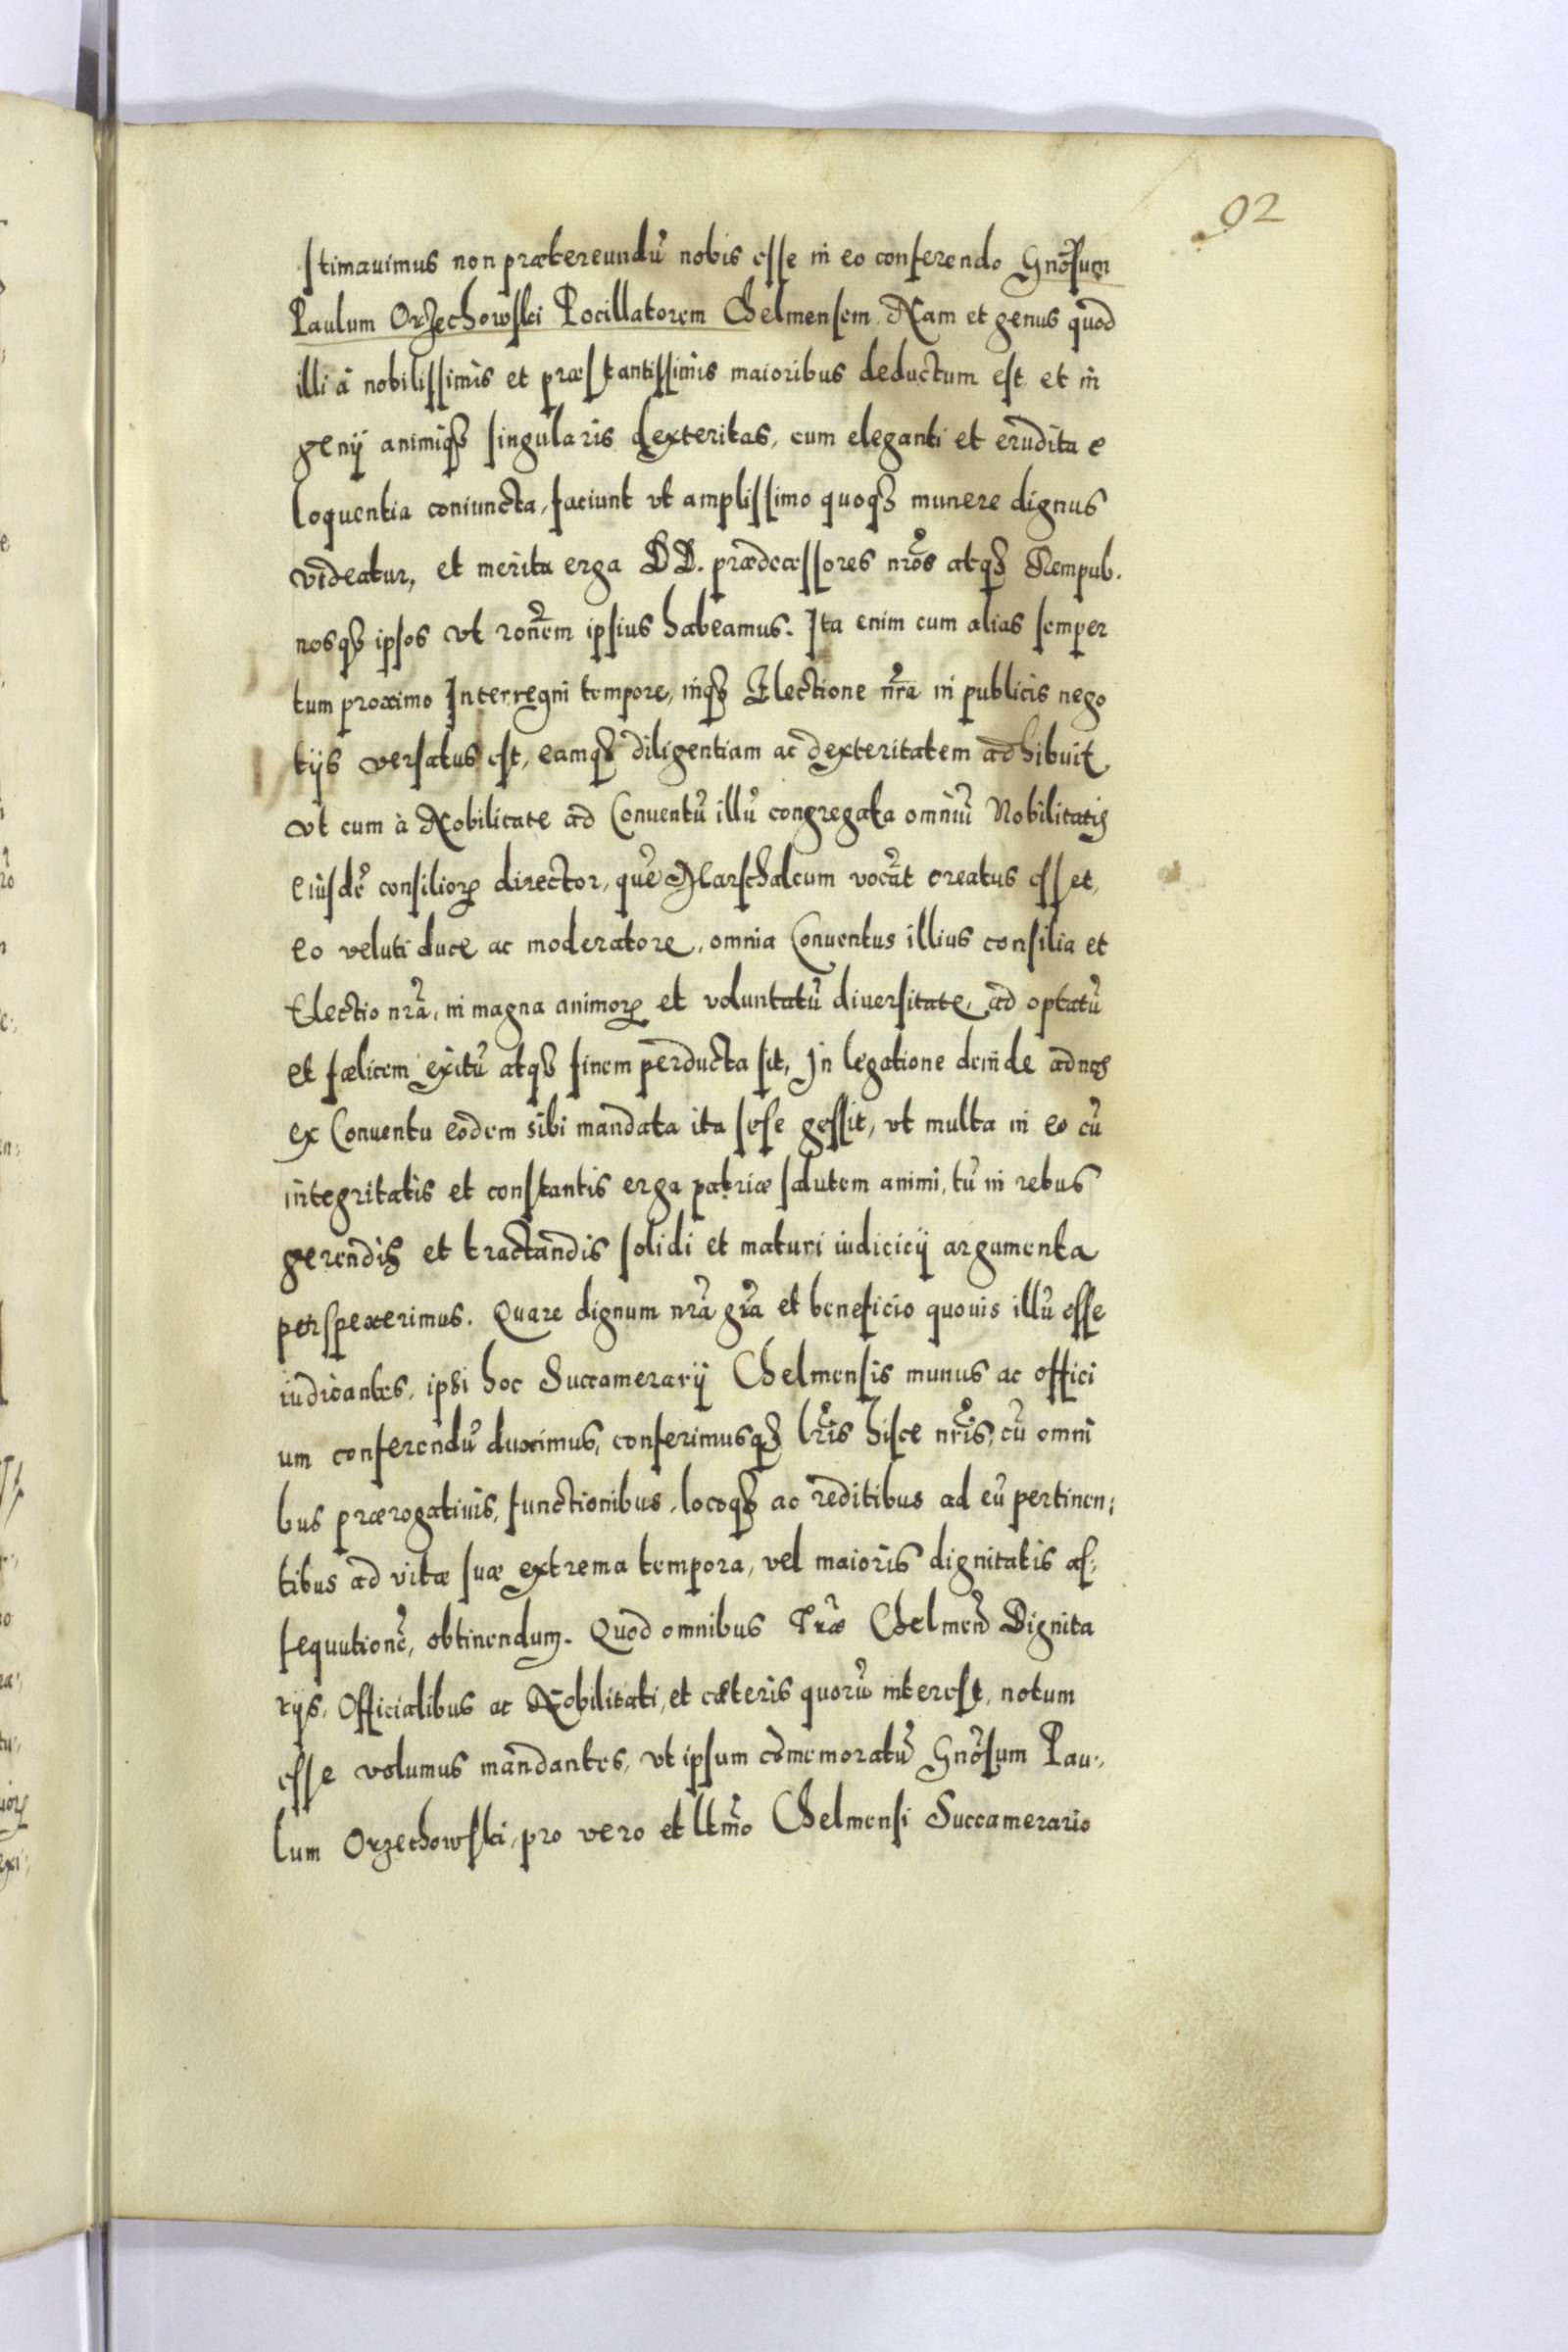 92
stimauimus non prætereundū nobis esse in eo conferendo Gnōsum
Paulum Orzechowski Pocillatorem Chelmensem. Nam et genus quod
illi à nobilissimis et præstantissimis maioribus deductum est et in
genij animiqȝ singularis dexteritas, cum eleganti et erudita e
loquentia coniuncta, faciunt vt amplissimo quoqȝ munere dignus
videatur, et merita erga DD. prædecessores nr̄os atqȝ Rempub.
nosqȝ ipsos vt ron̄em ipsius habeamus. Ita enim cum alias semper
tum proximo Interregni tempore, inqȝ Electione nr̄a in publicis nego
tijs versatus est, eamqȝ diligentiam ac dexteritatem adhibuit
vt cum à Nobilitate ad Conuentū illū congregata omniū Nobilitatis
eiusdē consiliorꝝ director, quē Marschalcum vocāt creatus esset,
eo veluti duce ac moderatore, omnia Conuentus illius consilia et
Electio nr̄a, in magna animorꝝ et voluntatū diuersitate, ad optatū
et fælicem exitū atqȝ finem perducta sit, In legatione deinde ad nos
ex Conuentu eodem sibi mandata ita sese gessit, vt multa in eo cū
integritatis et constantis erga patriæ salutem animi, tū in rebus
gerendis et tractandis solidi et maturi iudicicij argumenta
perspexerimus. Quare dignum nr̄a gr̄a et beneficio quouis illū esse
iudicantes, ipsi hoc Succamerarij Chelmensis munus ac offici
um conferendū duximus, conferimusqȝ lr̄is hisce nr̄is, cū omni
bus prærogatiuis, functionibus, locoqȝ ac reditibus ad eū pertinen:
tibus ad vitæ suæ extrema tempora, vel maioris dignitatis as:
sequutionē, obtinendum. Quod omnibus Tr̄æ Chelmen̄ Dignita
rijs, Officialibus ac Nobilitati, et cæteris quorū interest, notum
esse volumus mandantes, vt ipsum cōmemoratū Gnōsum Pau:
lum Orzechowski, pro vero et ltm̄o Chelmensi Succamerario